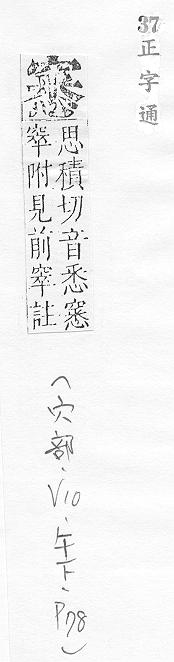 37
正字通
窸
思積切音悉窸
窣附見前窣註
(穴部.V10.午下.P78)